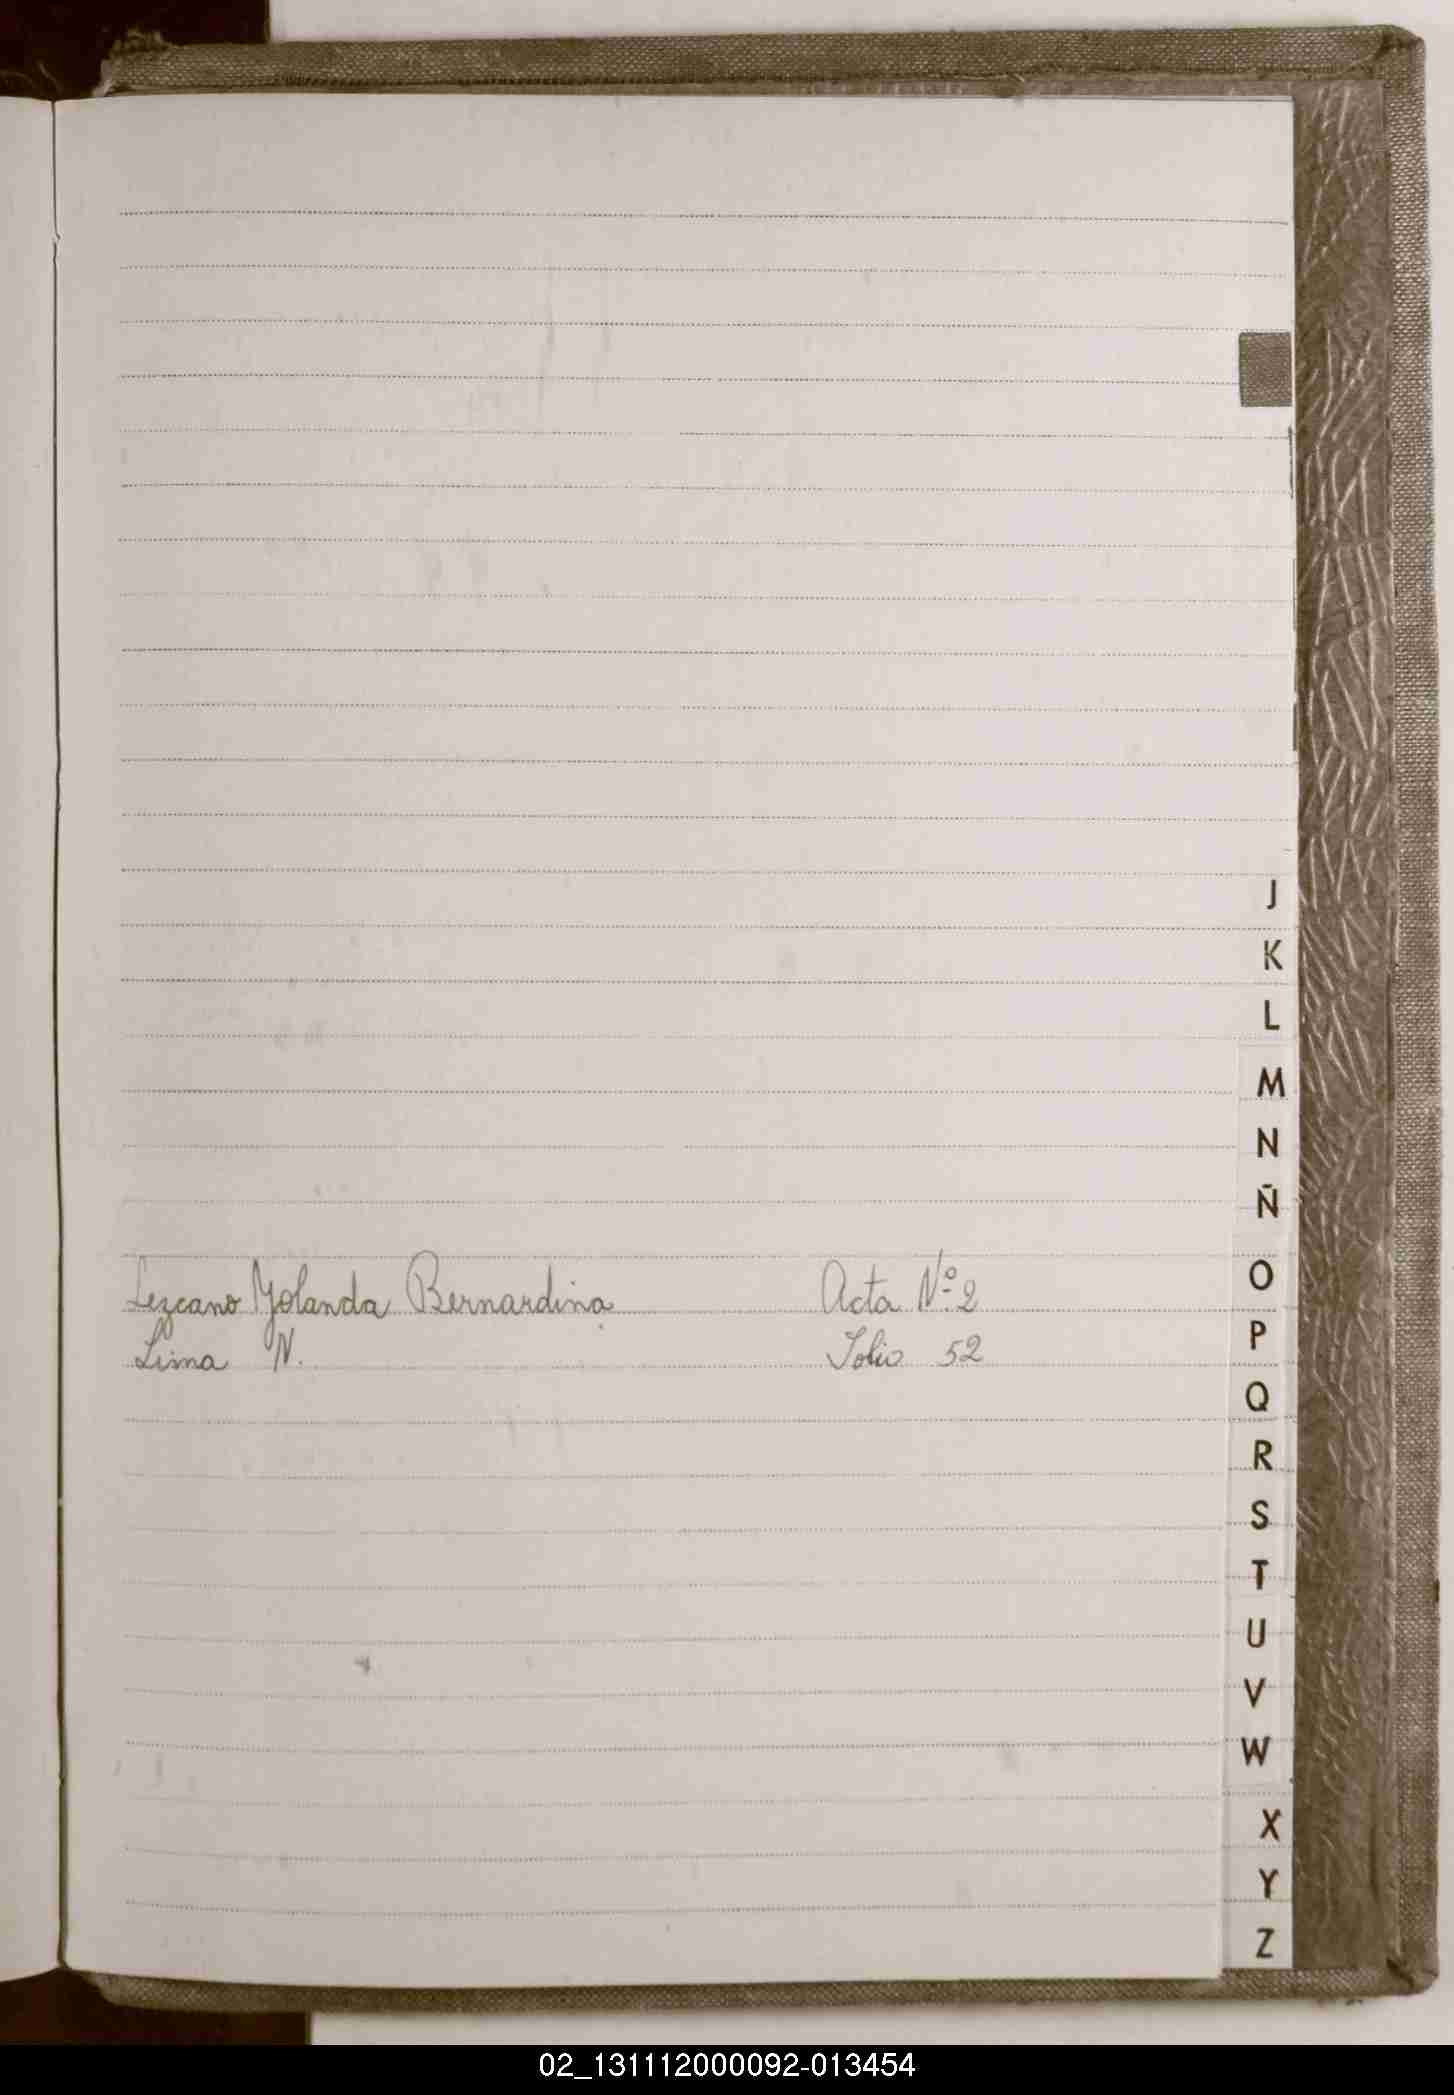 J
K
L
M
N
Ñ
Lezcano Yolanda Bernardina Acta Nº 2
Lima N. Folio 52
O
P
Q
R
S
T
U
V
W
X
Y
Z
02_131112000092-013454